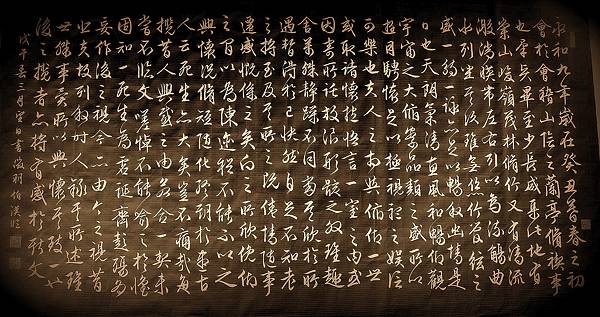 永和九年歲在癸丑暮春之初
會於會稽山陰之蘭亭脩禊事
也羣賢畢至少長咸集此地有
崇山峻嶺茂林脩竹又有清流
激湍映帶左右引以為流觴曲
水列坐其次雖無絲竹管絃之
盛一觴一詠亦足以暢敘幽情是
日也天朗氣清惠風和暢仰觀
宇宙之大俯察品類之盛所以
遊目騁懷足以極視聽之娛信
可樂也夫人之相與俯仰一世
或取諸懷抱悟言一室之內或
因寄所託放浪形骸之外雖趣
舍萬殊靜躁不同當其欣於所
遇暫得於己快然自足不知老
之將至及其所之既倦情隨事
遷感慨係之矣向之所欣俛仰
之間以為陳迹猶不能不以之
興懷況脩短隨化終期於盡古
人云死生亦大矣豈不痛哉每
攬昔人興感之由若合一契未
嘗不臨文嗟悼不能喻之於懷
固知一死生為虛誕齊彭殤為
妄作後之視今亦由今之視昔
悲夫故列敘時人錄其所述雖
世殊事異所以興懷其致一也
後之攬者亦將有感於斯文
戊午春三月望日書